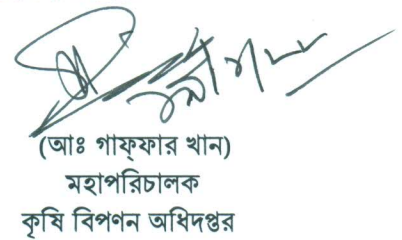 (আঃ গাফ্ফার খান)
মহাপরিচালক
কৃষি বিপণন অধিদপ্তর